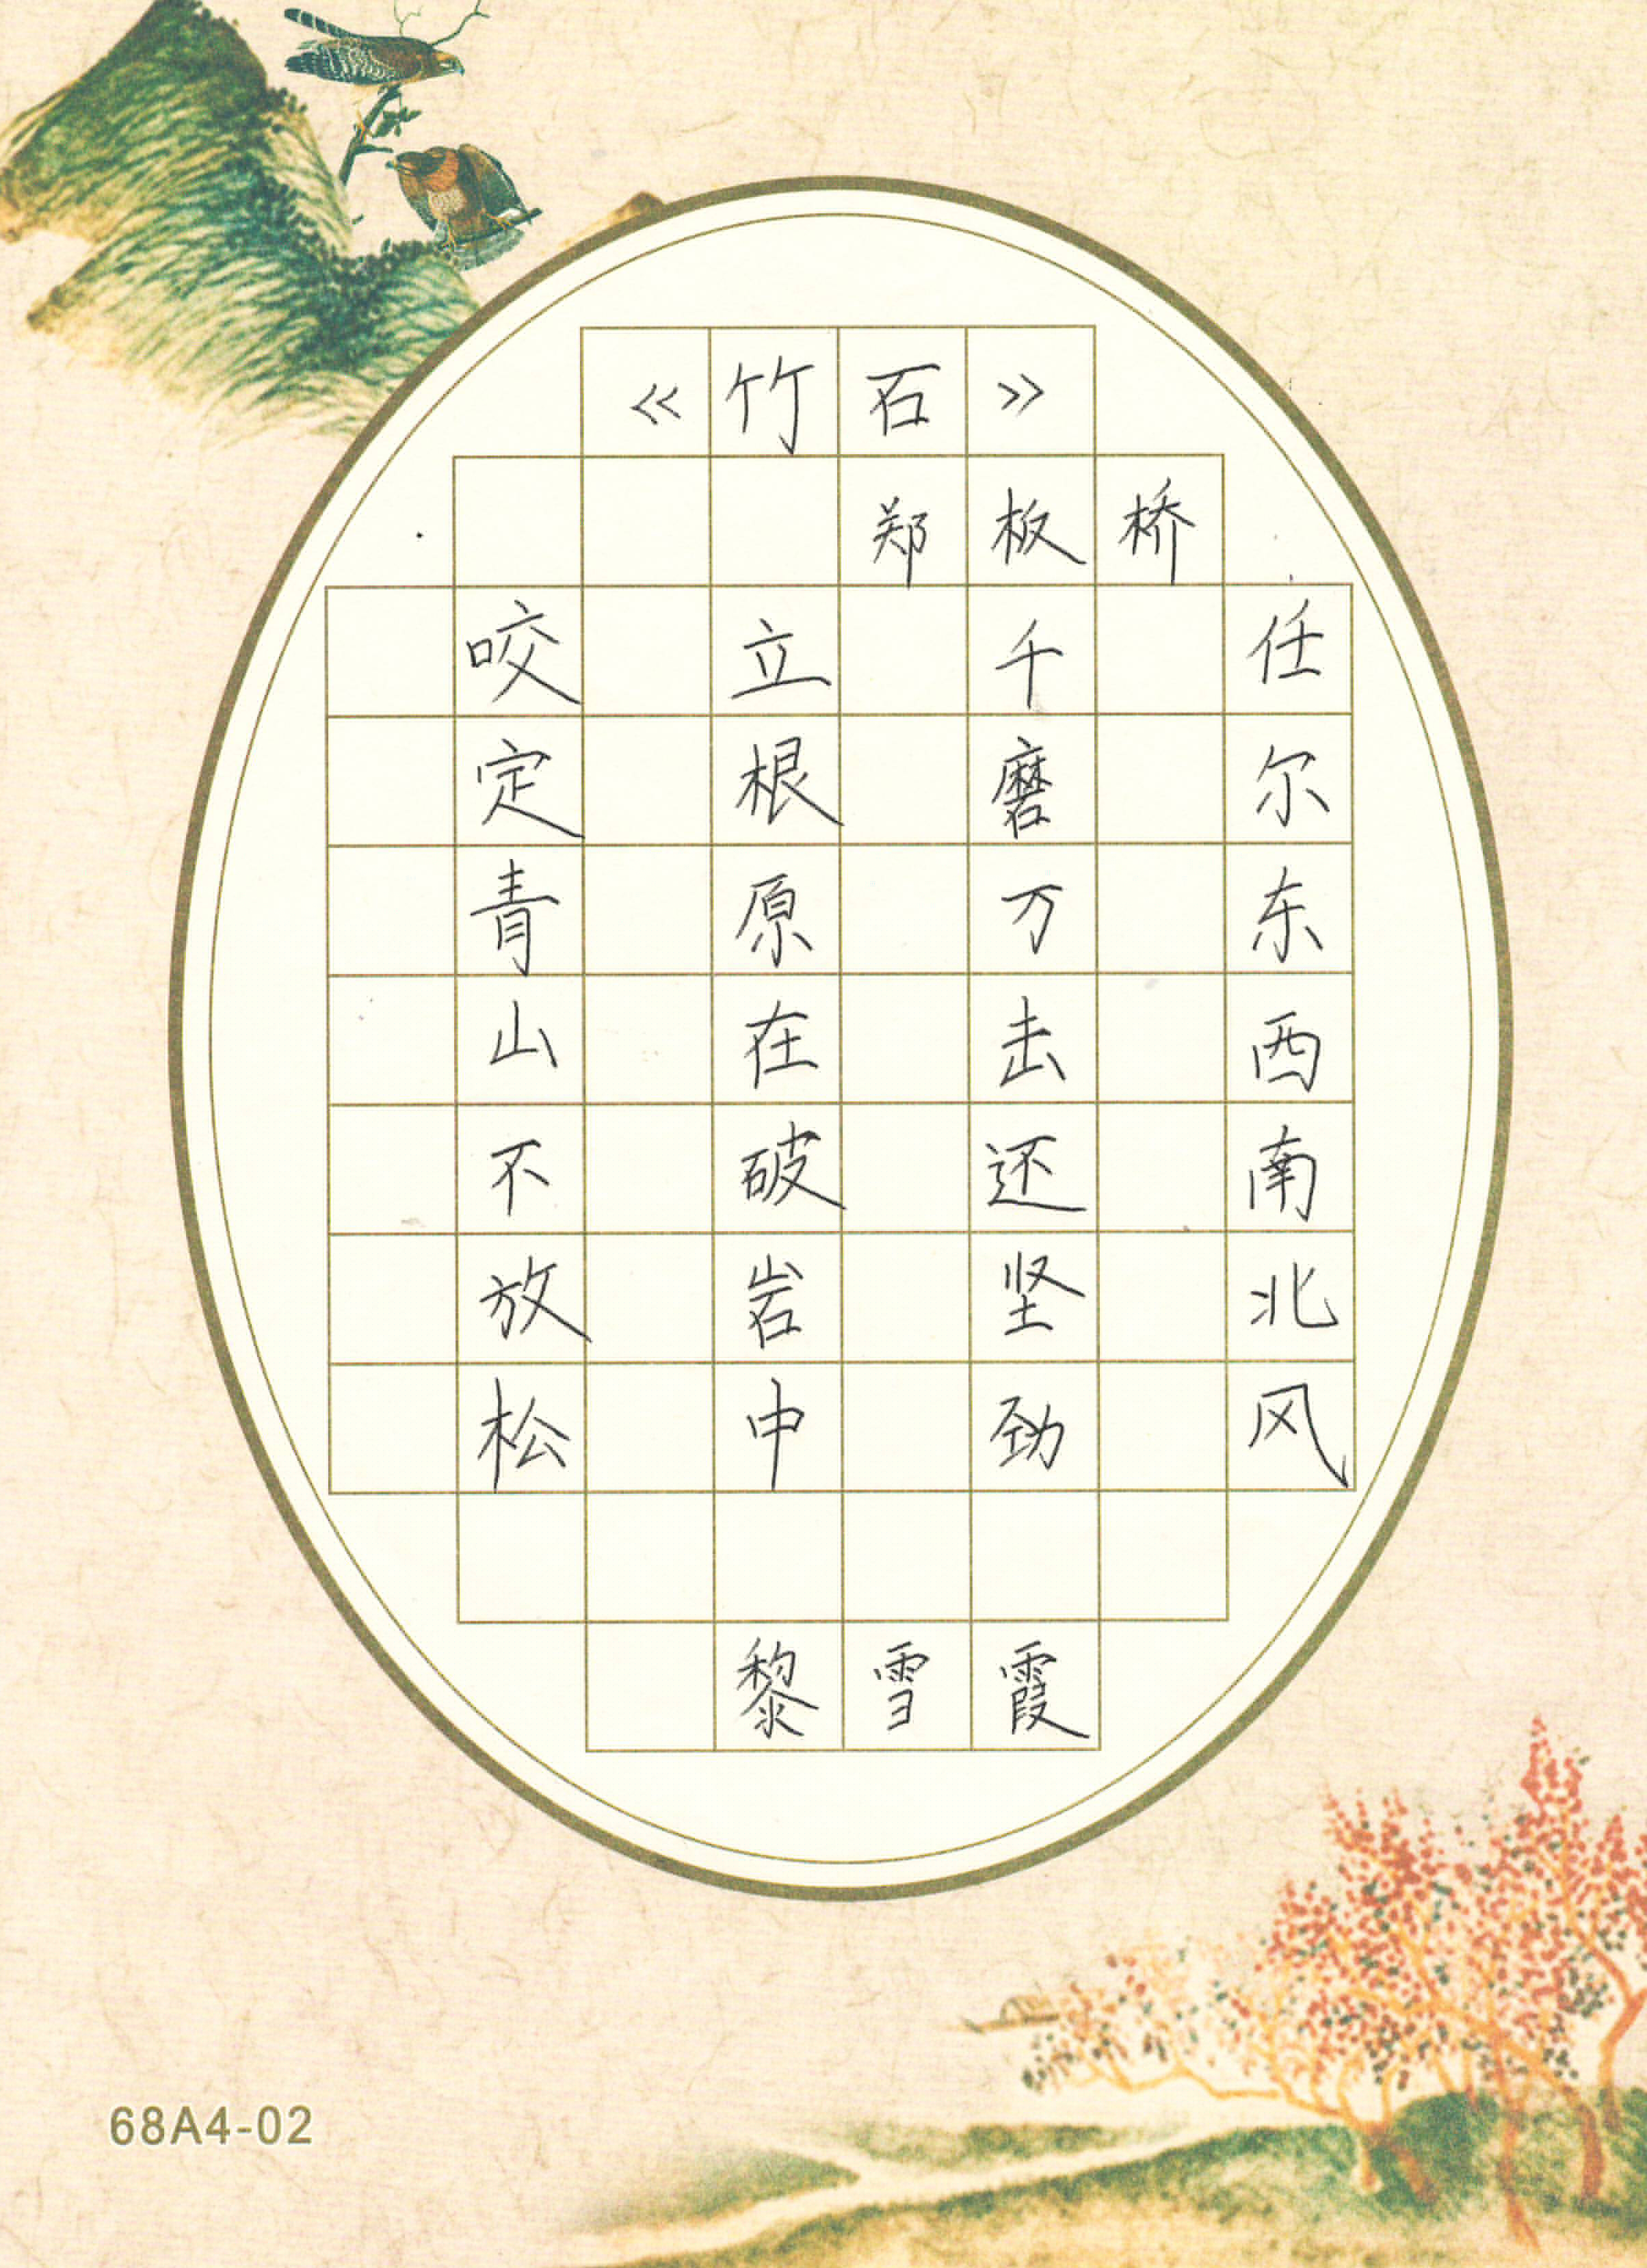 《竹石》
郑板桥
咬定青山不放松
立根原在破岩中
千磨万击还坚劲
任尔东西南北风
黎雪霞
68A4-02